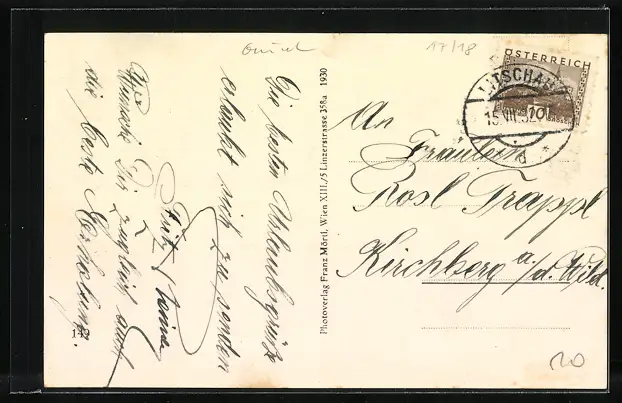 17/18
ÖSTERREICH
LITSCHAU
15.VII.32
d
An
Fräulein
Rosl Trappl
Kirchberg a./d. Wild.
Die besten Urlaubsgrüße
erlaubt sich zu senden
Fritz
Wünsche Dir zugleich auch
die beste Erholung.
Photoverlag Franz Mörtl, Wien XIII./5 Linzerstrasse 358a 1930
20